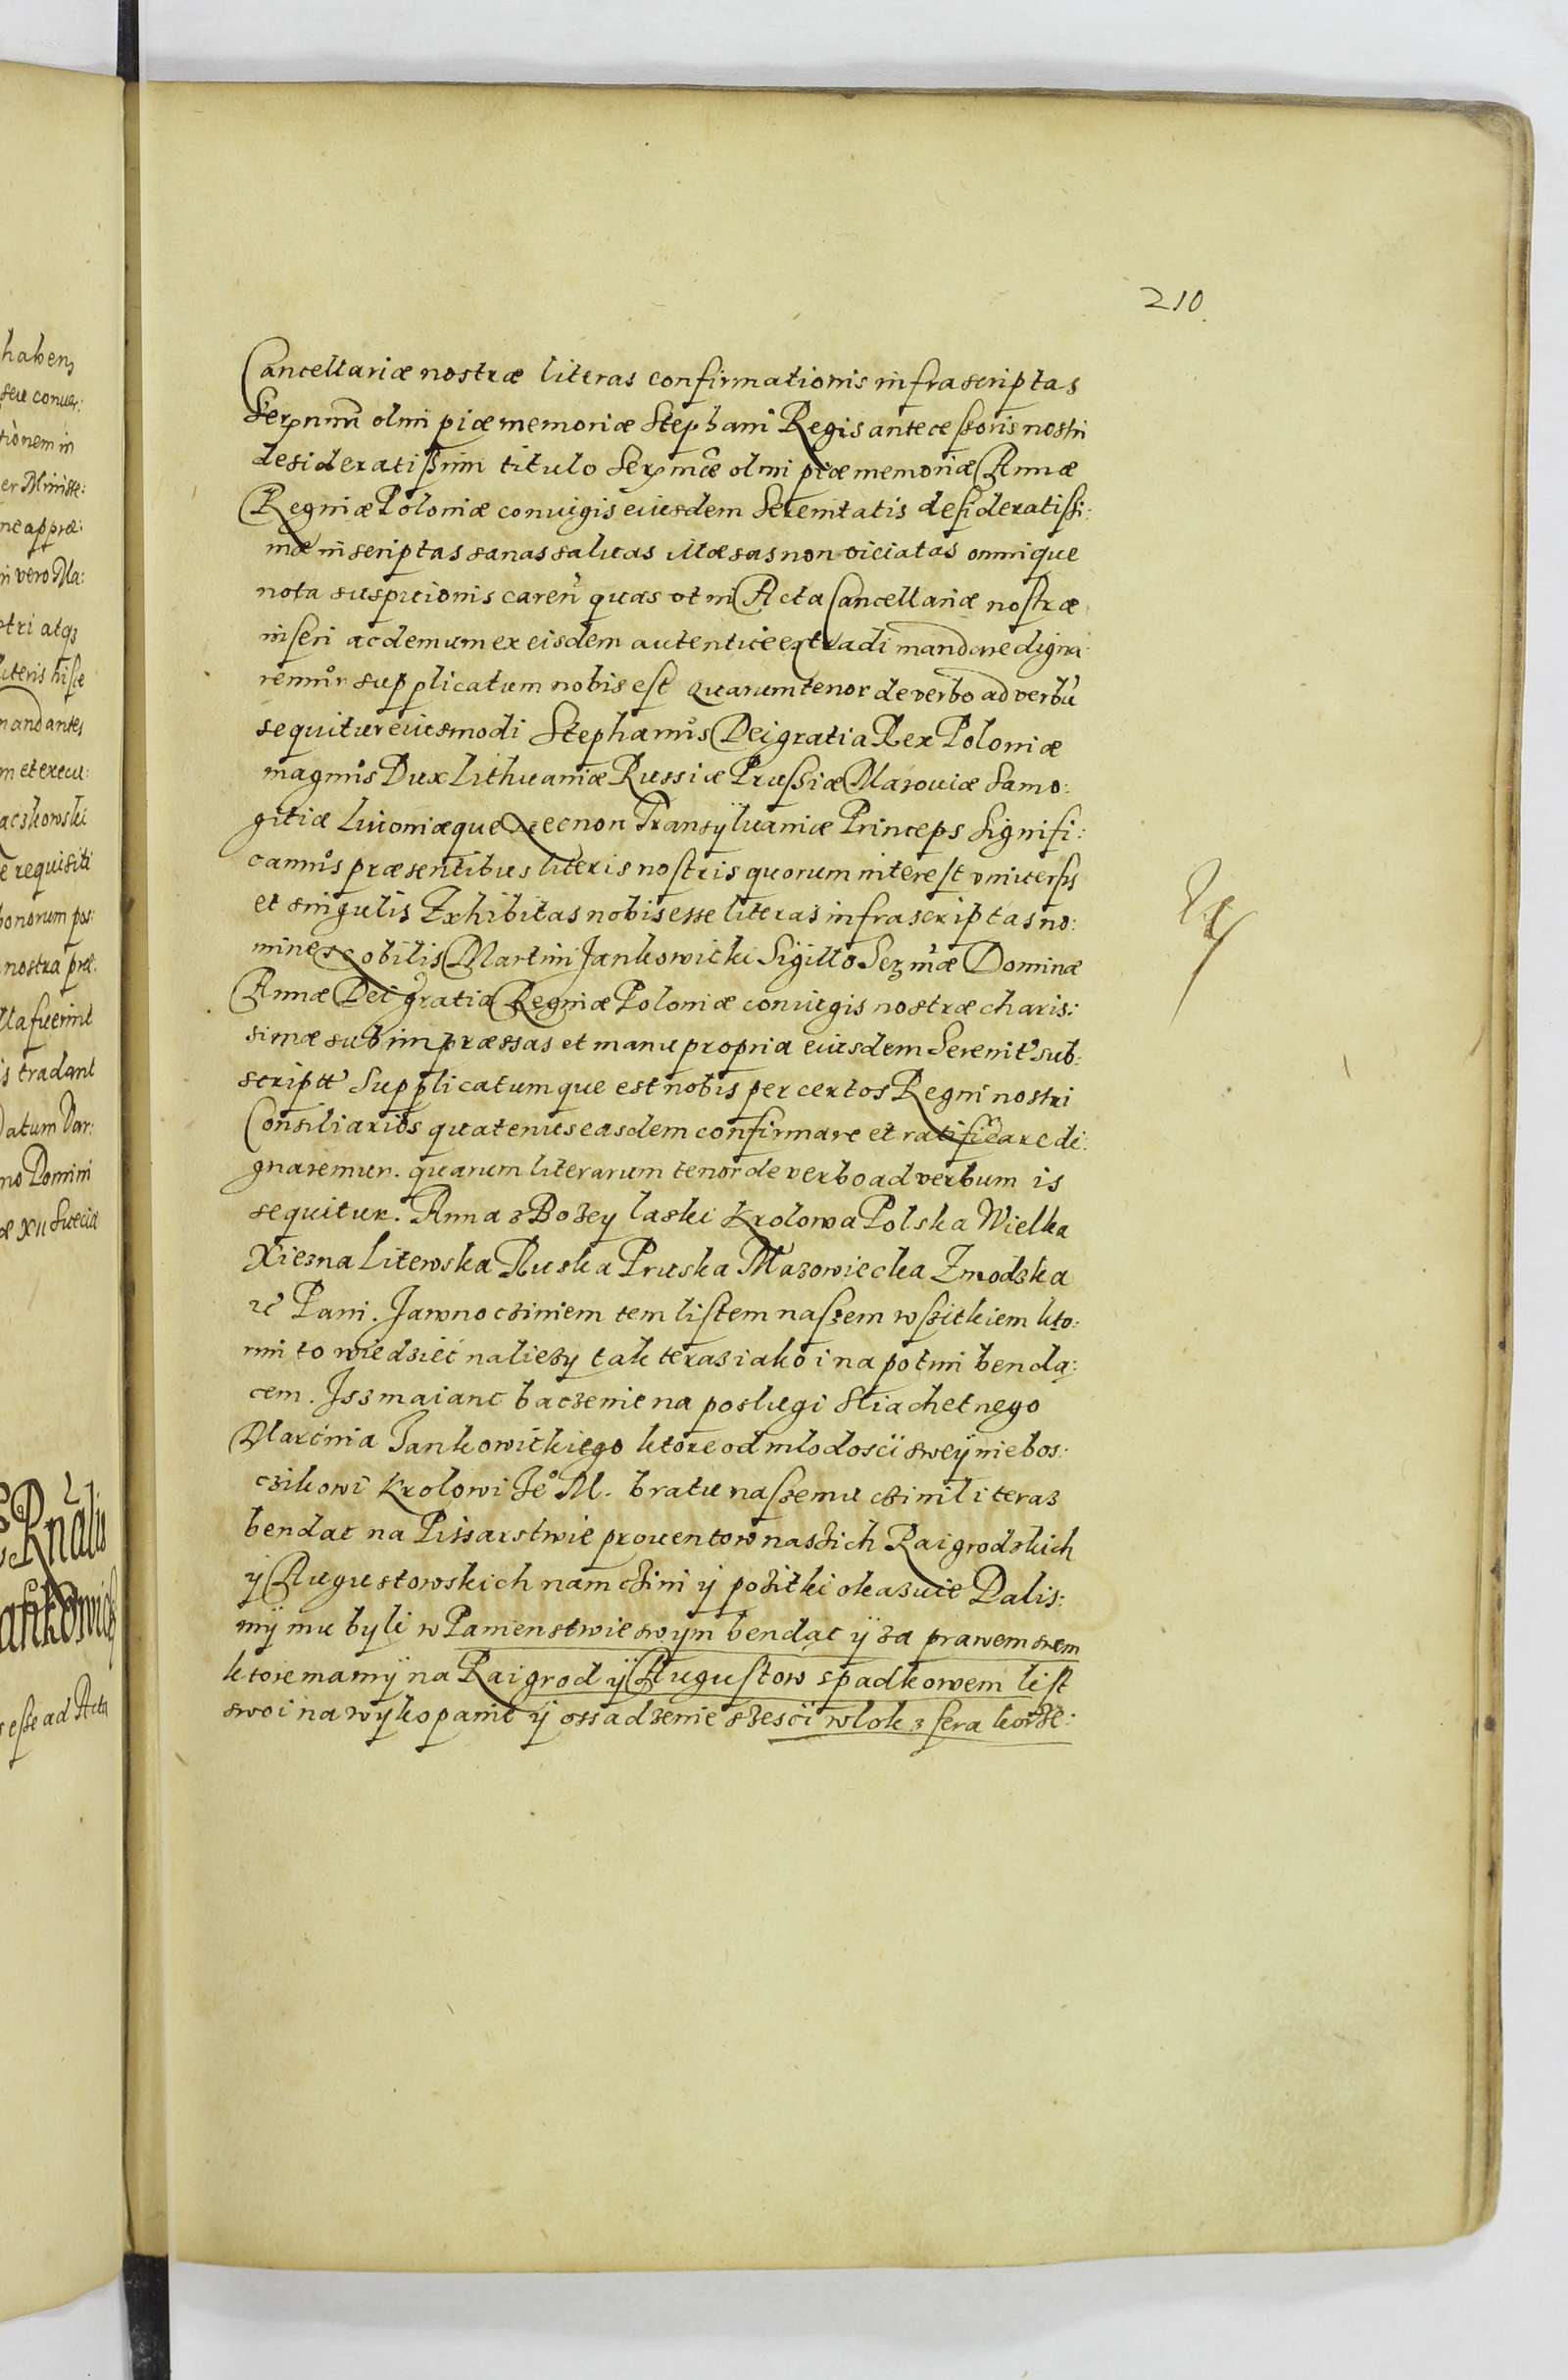 210.
Cancellariæ nostræ literas confirmationis infrascriptas
olim piæ memoriæ Stephani Regis antecessoris nostri
desideratissimi titulo olim piæ memoriæ Annæ
Reginæ Poloniæ coniugis eiusdem Serenitatis desideratissi:
mæ inscriptas sanas saluas illæsas non viciatas omnique
nota suspicionis caren̄ quas vt in Acta Cancellariæ nostræ
inseri ac demum ex eisdem autentice extradi mandare digna
remur supplicatum nobis est quarum tenor de verbo ad verbū
sequitur eiusmodi Stephanus Dei gratia Rex Poloniæ
magnus Dux Lithuaniæ Russiæ Prussiæ Mazouiæ Samo:
gitiæ Liuoniæque Necnon Transÿluaniæ Princeps Signifi:
camus præsentibus literis nostris quorum interest vniuersis
et singulis Exhibitas nobis esse literas infrascriptas no:
mine Nobilis Martini Jankowicki Sigillo Serm̄æ Dominæ
Annæ Dei gratia Reginæ Poloniæ coniugis nostræ charis:
simæ subimpræssas et manu propria eiusdem Serenit sub:
script Supplicatumque est nobis per certos Regni nostri
Consiliarios quatenus easdem confirmare et ratificare di:
gnaremur. quarum literarum tenor de verbo ad verbum is
sequitur. Anna z Bozey laski Krolowa Polska Wielka
Xiezna Litewska Ruska Pruska Mazowiecka Zmodzka
Pani. Jawno cziniem tem listem naszem wszitkiem kto:
rim to wiedziec naliezy tak teraz iako i na potim benda:
cem. Jsz maianc baczenie na poslugi Sliachetnego
Marcina Jankowickiego ktore od mlodosci sweÿ niebos:
czikowi Krolowi Je° M. bratu naszemu czinil i teraz
bendac na Pissarstwie prouentow naszich Raigrodzkich
ÿ Augustowskich nam czini ÿ pozitki okazuie Dalis:
mÿ mu byli w Panienstwie swym bendąc ÿ za prawem swem
ktore mamÿ na Raigrod ÿ Augustow spadkowem list
swoi na wykopanie ÿ ossadzenie szesci wlok z sera